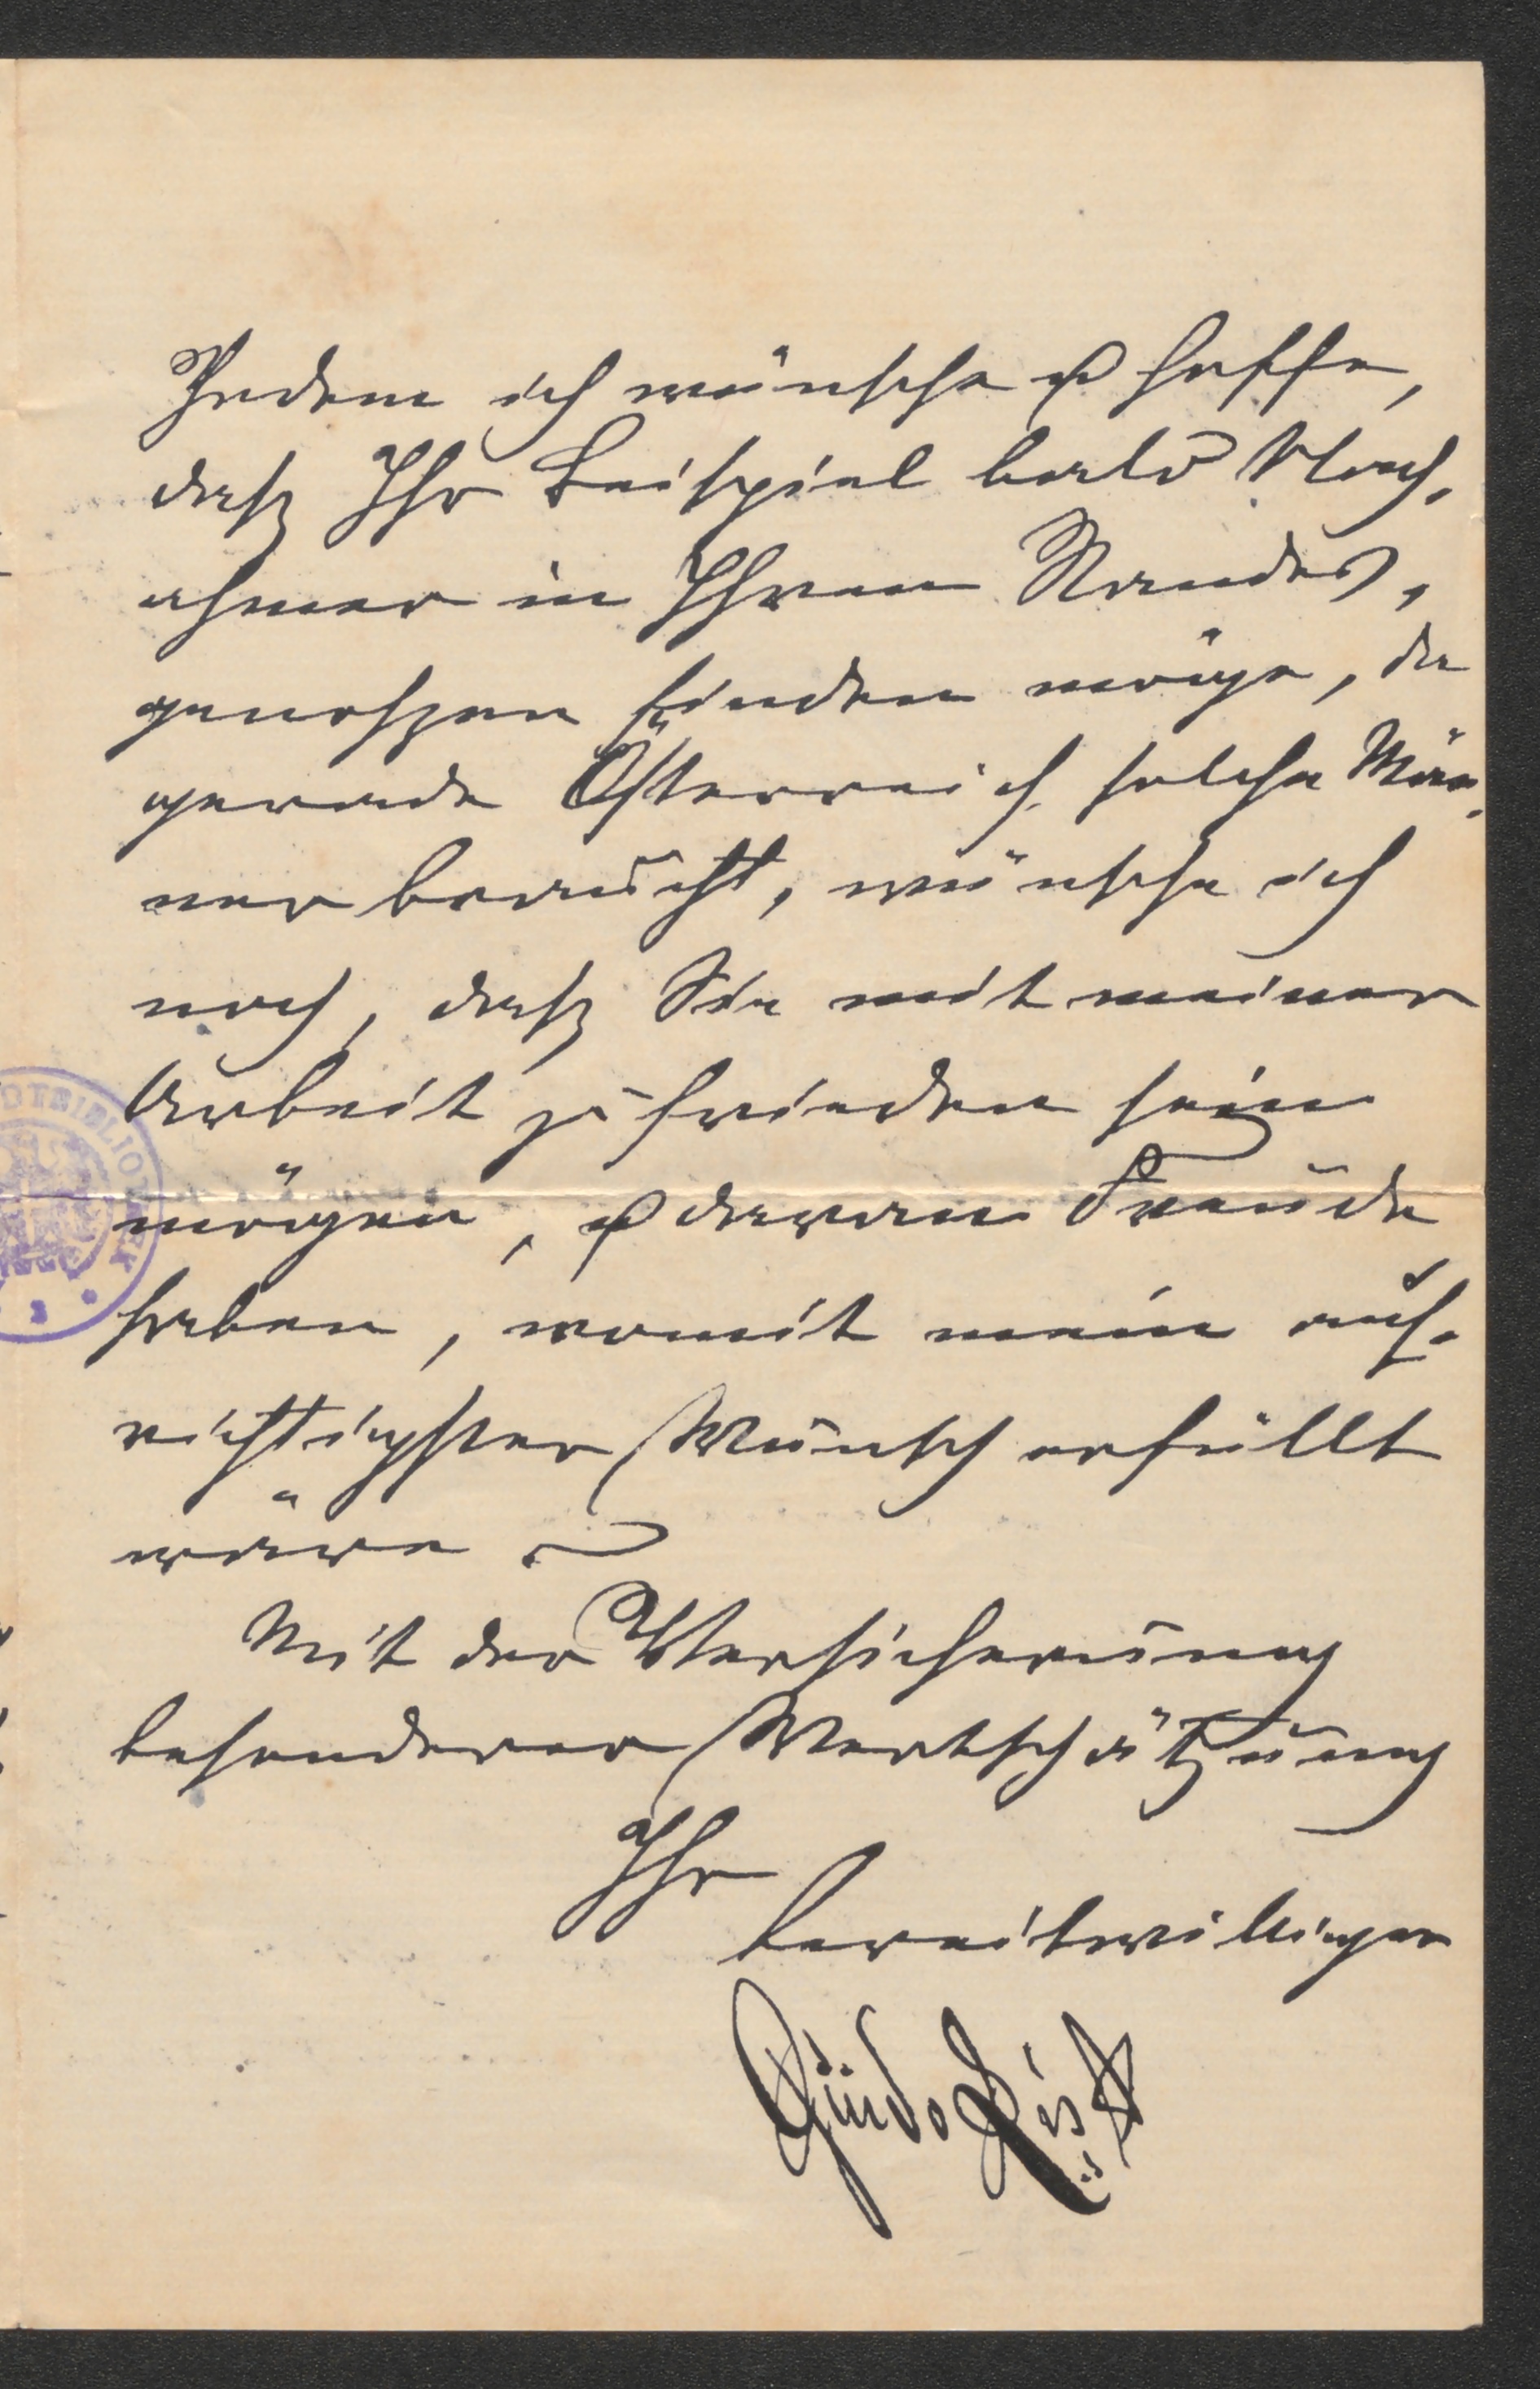 Indem ich wünsche u hoffe,
daß Ihr Beispiel bald Nach-
ahmer in Ihren Standes-
genoßen finden möge, da
gerade Österreich solche Män-
ner braucht, wünsche ich
noch, daß Sie mit meiner
Arbeit zufrieden sein
mögen, u daran Freude
haben, womit mein auf-
richtigster Wunsch erfüllt
wäre
Mit der Versicherung
besonderer Wertschätzung
Ihr
bereitwilliger
Guido List